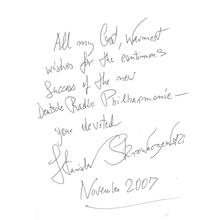 All my best, warmest
wishes for the continuous
success of the new
Deutsche Radio Philharmonie –
your devoted
Stanislaw Skrowaczewski
November 2007